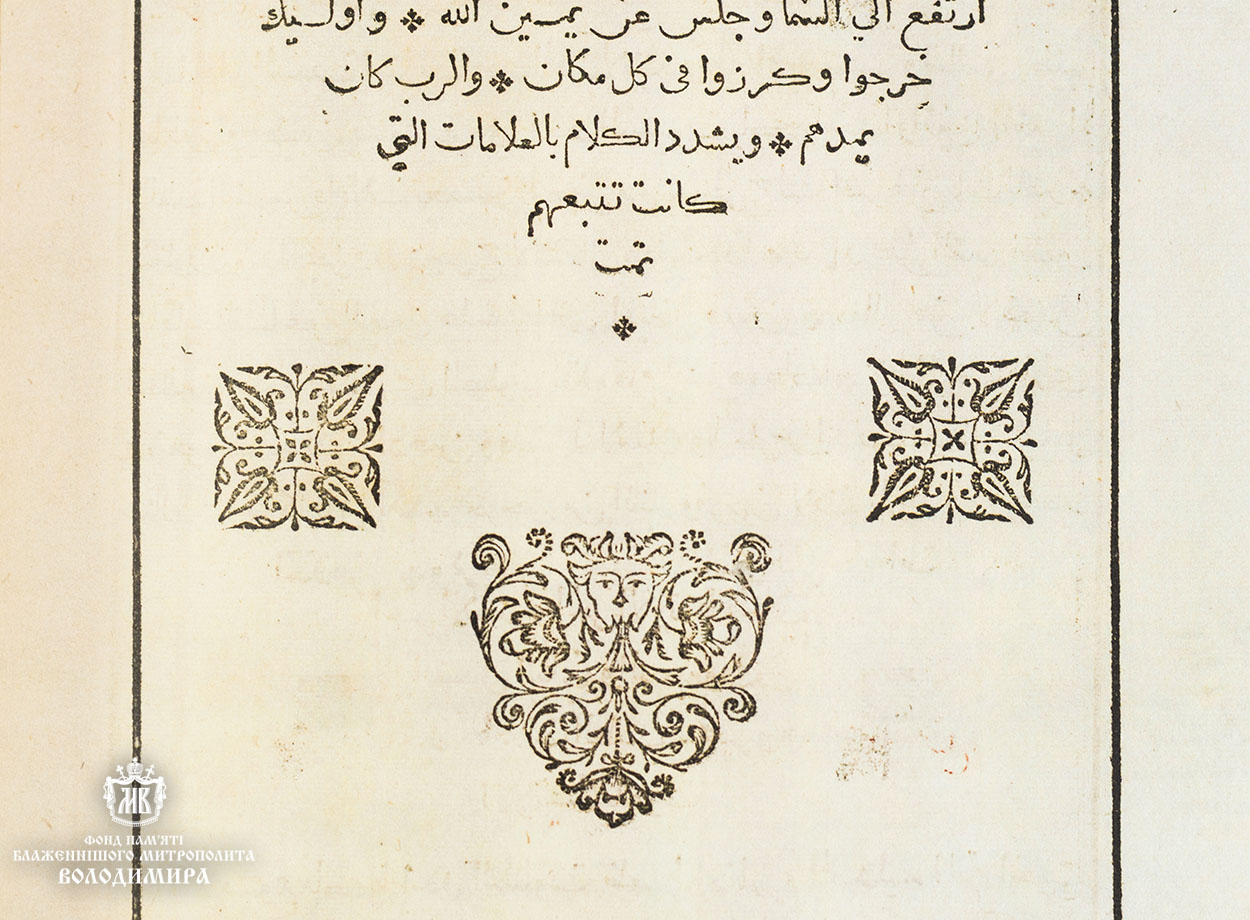 ارتفع الي السما وجلس عن يمين الله ❖ واوليك
خرجوا وكرزوا في كل مكان ❖ والرب كان
يمدهم ❖ ويشدد الكلام بالعلامات التي
كانت تتبعهم
تمت
МВ
ФОНД ПАМ'ЯТІ
БЛАЖЕННІШОГО МИТРОПОЛИТА
ВОЛОДИМИРА